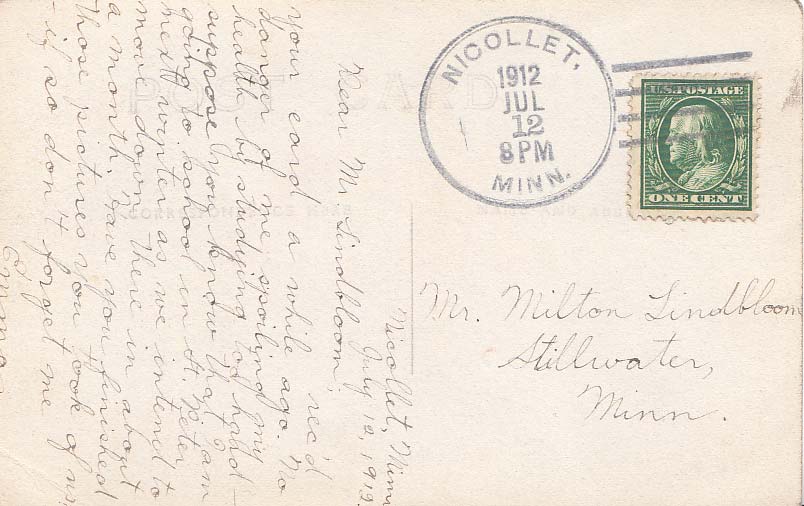 POST CARD
CORRESPONDENCE HERE
NAME AND
NICOLLET,
1912
JUL
12
8 PM
MINN.
U.S. POSTAGE
ONE CENT
Mr. Milton Lindbloom
Stillwater,
Minn.
Nicollet, Minn
July 12, 1912.
Dear Mr Lindbloom;
rec'd
your card a while ago. No
danger of me spoiling my
health by studying too hard -
suppose you know that I am
going to school in St. Peter
next winter as we intend to
move down there in about
a month. Have you finished
those pictures you took of us
- if so don't forget me
Emma